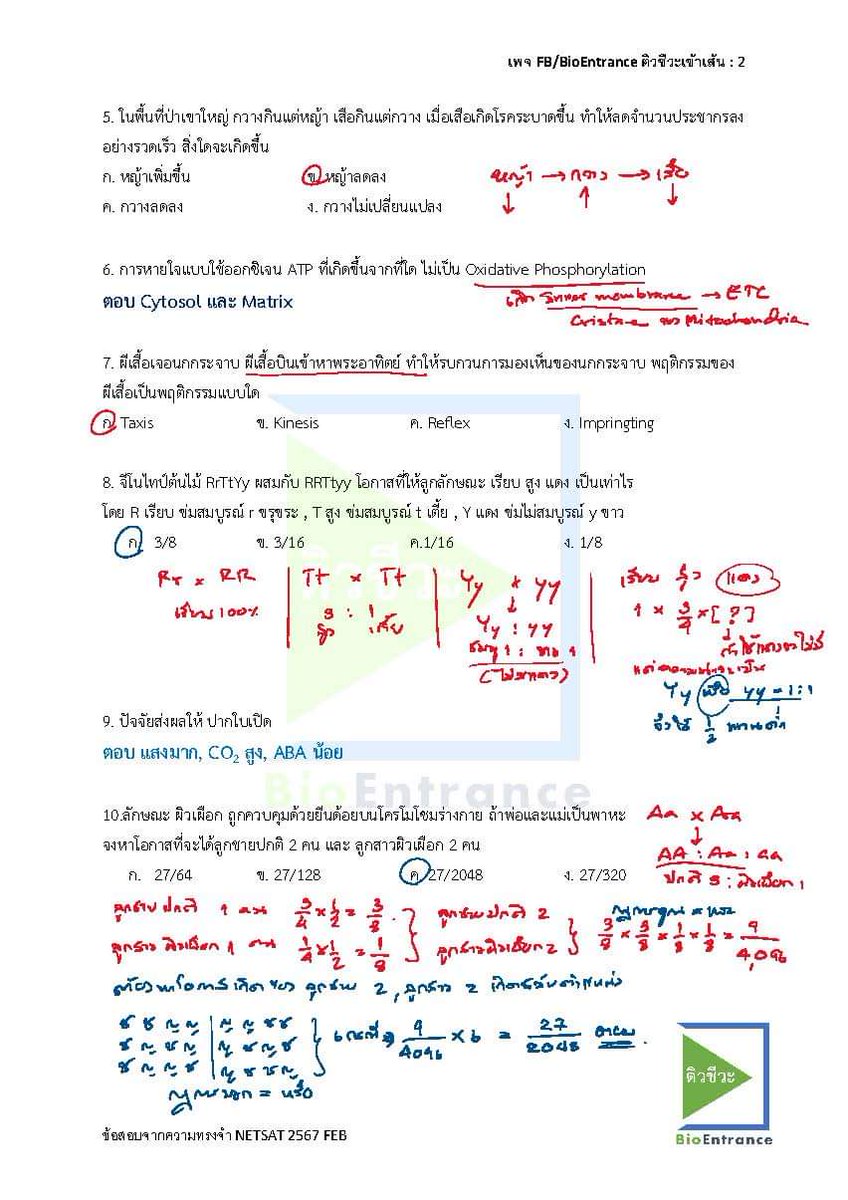 เพจ FB/BioEntrance ติวชีวะเข้าเส้น : 2
5. ในพื้นที่ป่าเขาใหญ่ กวางกินแต่หญ้า เสือกินแต่กวาง เมื่อเสือเกิดโรคระบาดขึ้น ทำให้ลดจำนวนประชากรลง
อย่างรวดเร็ว สิ่งใดจะเกิดขึ้น
ก. หญ้าเพิ่มขึ้น ข. หญ้าลดลง
หญ้า → กวาง → เสือ
ค. กวางลดลง ง. กวางไม่เปลี่ยนแปลง
↓ ↑ ↓
6. การหายใจแบบใช้ออกซิเจน ATP ที่เกิดขึ้นจากที่ใด ไม่เป็น Oxidative Phosphorylation
ตอบ Cytosol และ Matrix
membrane → ETC
Cristae ของ Mitochondria
7. ผีเสื้อเจอนกกระจาบ ผีเสื้อบินเข้าหาพระอาทิตย์ ทำให้รบกวนการมองเห็นของนกกระจาบ พฤติกรรมของ
ผีเสื้อเป็นพฤติกรรมแบบใด
ก. Taxis ข. Kinesis ค. Reflex ง. Impringting
8. จีโนไทป์ต้นไม้ RrTtYy ผสมกับ RRTtyy โอกาสที่ให้ลูกลักษณะ เรียบ สูง แดง เป็นเท่าไร
โดย R เรียบ ข่มสมบูรณ์ r ขรุขระ , T สูง ข่มสมบูรณ์ t เตี้ย , Y แดง ข่มไม่สมบูรณ์ y ขาว
ก. 3/8 ข. 3/16 ค.1/16 ง. 1/8
Rr x RR | Tt x Tt | Yy x yy | เรียบ สูง แดง
เรียบ 100% | 3 : 1 | Yy : yy | 1 x 3/4 x [ ? ]
สูง เตี้ย | ชมพู 1 : ขาว 1
(ไม่มีแดง)
Yy หรือ yy = 1:1
จึงใช้ 1/2
9. ปัจจัยส่งผลให้ ปากใบเปิด
ตอบ แสงมาก, CO₂ สูง, ABA น้อย
ติวชีวะ
BioEntrance
10.ลักษณะ ผิวเผือก ถูกควบคุมด้วยยีนด้อยบนโครโมโซมร่างกาย ถ้าพ่อและแม่เป็นพาหะ
จงหาโอกาสที่จะได้ลูกชายปกติ 2 คน และ ลูกสาวผิวเผือก 2 คน
Aa x Aa
↓
AA : Aa : aa
ปกติ 3 : ผิวเผือก 1
ก. 27/64 ข. 27/128 ค. 27/2048 ง. 27/320
ลูกชายปกติ 1 คน 3/4 x 1/2 = 3/8
ลูกสาวผิวเผือก 1 คน 1/4 x 1/2 = 1/8
ลูกชายปกติ 2
ลูกสาวผิวเผือก 2
กฎการคูณ = และ
3/8 x 3/8 x 1/8 x 1/8 = 9/4,096
ช ช ญ ญ | ญ ญ ช ช
ช ญ ช ญ | ญ ช ญ ช
ช ญ ญ ช | ญ ช ช ญ
9/4096 x 6 = 27/2048 ตอบ
กฎการบวก = หรือ
ติวชีวะ
BioEntrance
ข้อสอบจากความทรงจำ NETSAT 2567 FEB